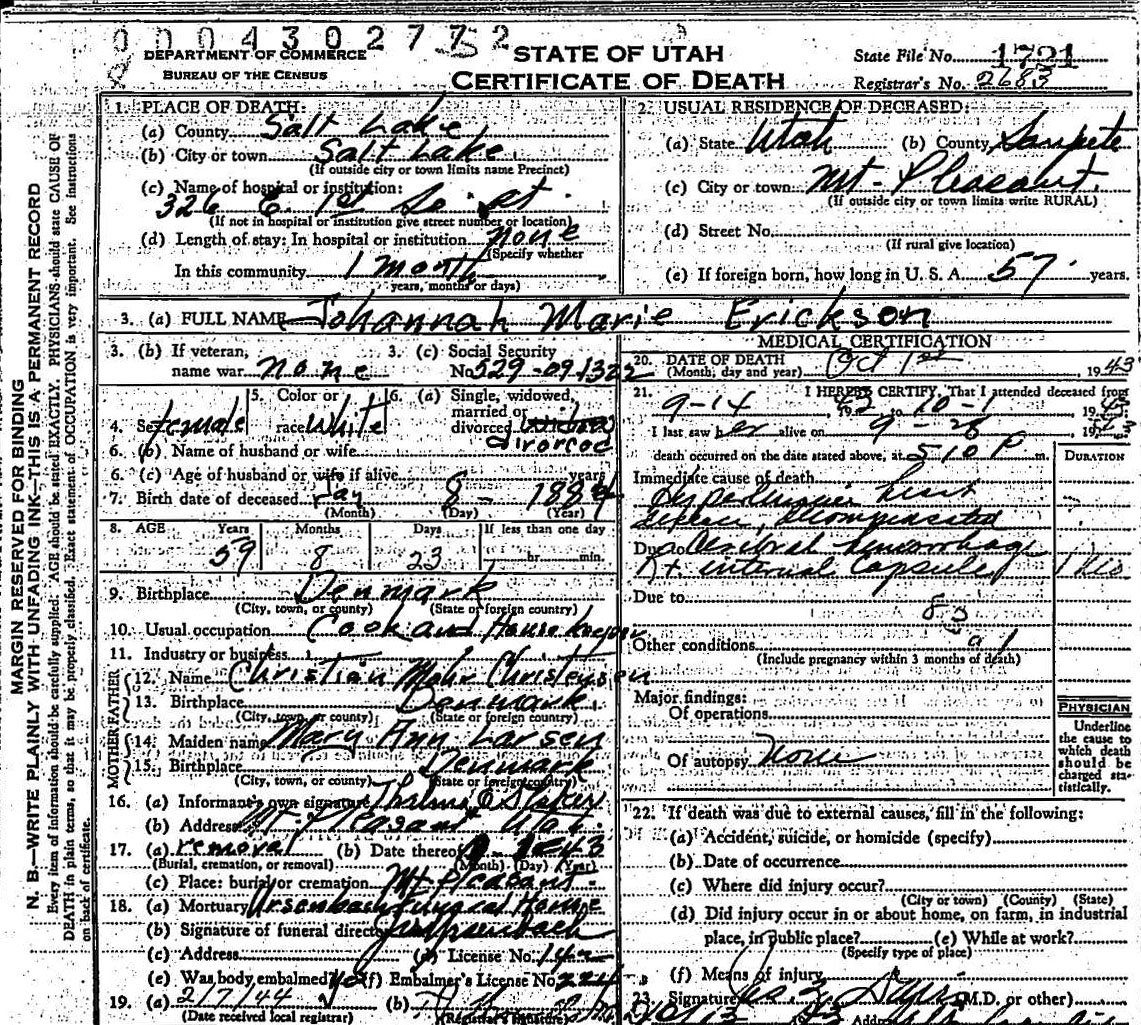 0004302772
DEPARTMENT OF COMMERCE
BUREAU OF THE CENSUS
STATE OF UTAH
CERTIFICATE OF DEATH
State File No. 1721
Registrar's No. 2683
MARGIN RESERVED FOR BINDING
N. B.—WRITE PLAINLY WITH UNFADING INK—THIS IS A PERMANENT RECORD
Every item of information should be carefully supplied. AGE should be stated EXACTLY. PHYSICIANS should state CAUSE OF
DEATH in plain terms, so that it may be properly classified. Exact statement of OCCUPATION is very important. See instructions
on back of certificate.
1. PLACE OF DEATH:
(a) County Salt Lake
(b) City or town Salt Lake
(If outside city or town limits name Precinct)
(c) Name of hospital or institution:
326 E. 1st So. St.
(If not in hospital or institution give street number or location)
(d) Length of stay: In hospital or institution none
(Specify whether
In this community 1 month
years, months or days)
2. USUAL RESIDENCE OF DECEASED:
(a) State Utah (b) County Sanpete
(c) City or town Mt. Pleasant.
(If outside city or town limits write RURAL)
(d) Street No.
(If rural give location)
(e) If foreign born, how long in U. S. A. 57 years.
3. (a) FULL NAME Johannah Marie Erickson
3. (b) If veteran, name war none
3. (c) Social Security No. 529-09-1322
4. Sex female
5. Color or race White
6. (a) Single, widowed, married or divorced divorced
6. (b) Name of husband or wife
6. (c) Age of husband or wife if alive years
7. Birth date of deceased Jan 8 - 1884
(Month) (Day) (Year)
8. AGE Years Months Days If less than one day
59 8 23 hr. min.
9. Birthplace Denmark
(City, town, or county) (State or foreign country)
10. Usual occupation Cook and Housekeeper
11. Industry or business
FATHER
12. Name Christian Mohr Christensen
13. Birthplace Denmark
(City, town, or county) (State or foreign country)
MOTHER
14. Maiden name Mary Ann Larsen
15. Birthplace Denmark
(City, town, or county) (State or foreign country)
16. (a) Informant's own signature Thelma Staker
(b) Address Mt. Pleasant Utah.
17. (a) removal (b) Date thereof
(Burial, cremation, or removal) (Month) (Day) (Year)
(c) Place: burial or cremation Mt Pleasant.
18. (a) Mortuary Ursenbach Funeral Home
(b) Signature of funeral director Ursenbach
(c) Address (d) License No.
(e) Was body embalmed Yes (f) Embalmer's License No.
19. (a) 2/7/44 (b)
(Date received local registrar) (Registrar's signature)
MEDICAL CERTIFICATION
20. DATE OF DEATH Oct 1st 1943
(Month, day and year)
21. I HEREBY CERTIFY, That I attended deceased from
9-14, 1943 to 10-1, 19
I last saw her alive on 9-28, 19
death occurred on the date stated above, at 5 10 P m.
DURATION
Immediate cause of death
Hypertensive heart
disease, decompensated
Due to Cerebral hemorrhage
Rt. internal capsule
Due to
83
a 1
Other conditions
(Include pregnancy within 3 months of death)
Major findings:
Of operations
Of autopsy None
PHYSICIAN
Underline the cause to which death should be charged statistically.
22. If death was due to external causes, fill in the following:
(a) Accident, suicide, or homicide (specify)
(b) Date of occurrence
(c) Where did injury occur?
(City or town) (County) (State)
(d) Did injury occur in or about home, on farm, in industrial
place, in public place? (e) While at work?
(Specify type of place)
(f) Means of injury
23. Signature (M.D. or other)
Address